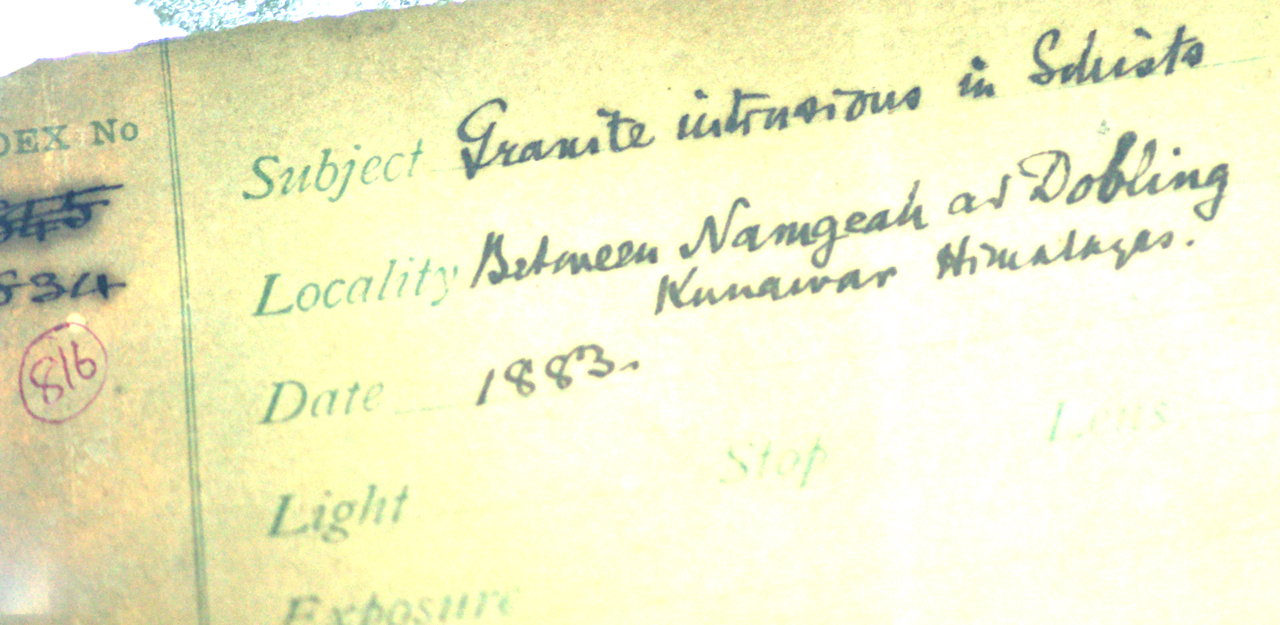 DEX No
834
816
Subject Granite intrusions in Schists
Locality Between Namgeah ad Dobling
Kunawar Himalayas.
Date 1883.
Stop Lens
Light
Exposure